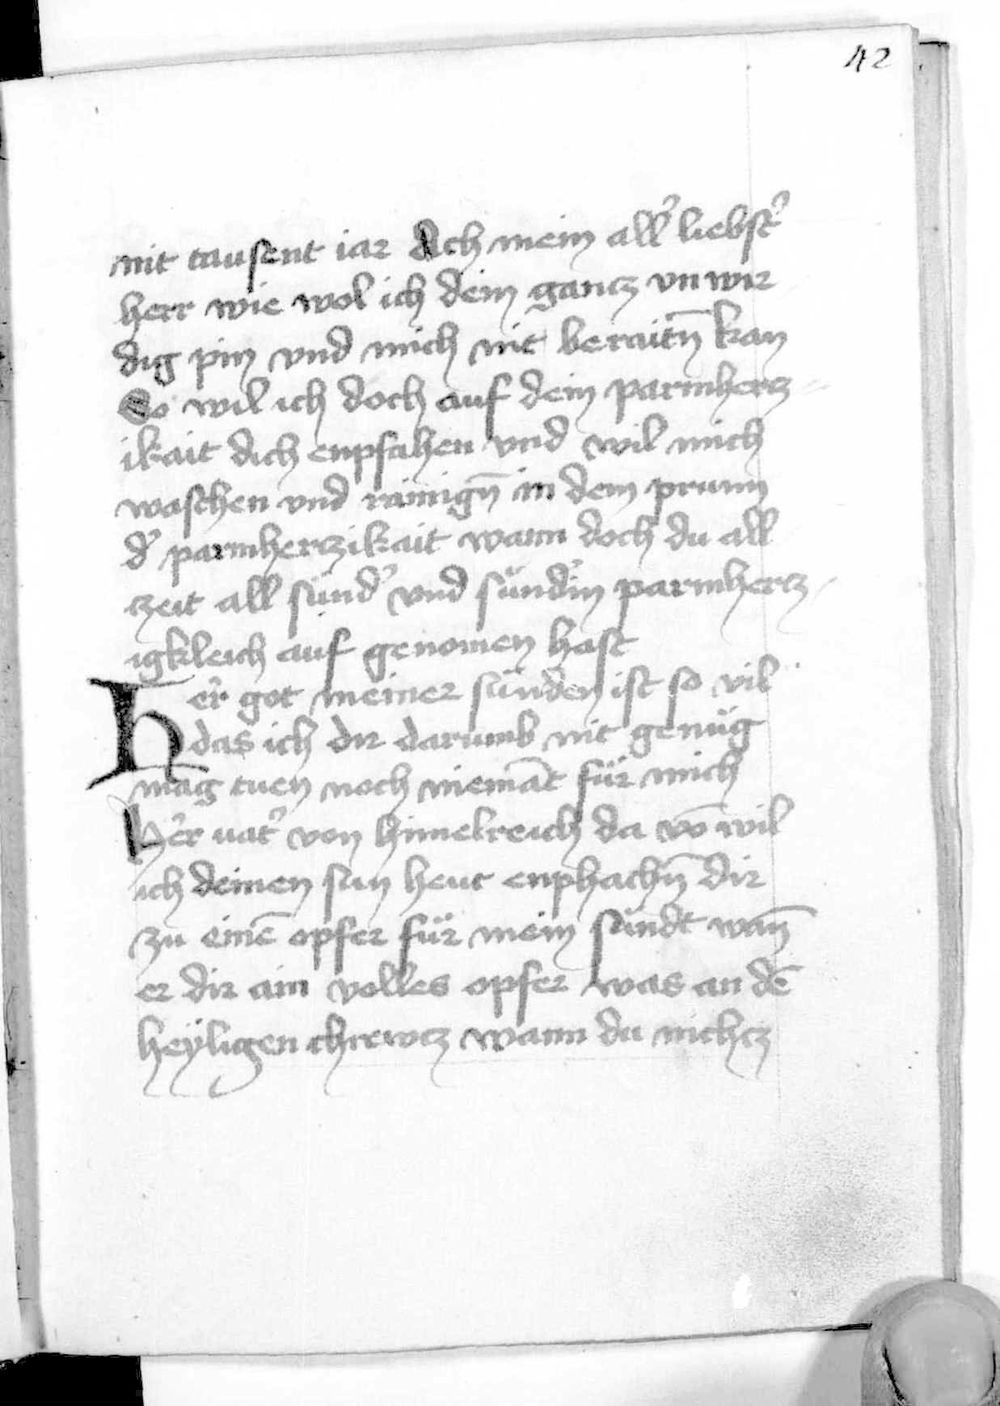 42
nit tausent iar Ach mein all' liebst'
herr wie wol ich dein gancz vn wir
dig pin vnd mich nit beraitn̄ kan
So wil ich doch auf dein parmhercz
ikait dich enpfahen vnd wil mich
waschen vnd rainign̄ in dem prunn
d' parmherczikait wann doch du all
czeit all sünd' vnd sündin parmhercz
igkleich auf genomen hast
Her got meiner sünden ist so vil
das ich dir darumb nit genüg
mag tuen noch niemāt für mich
Her uat' von himelreich da vō wil
ich deinen sun heut enphachn̄ dir
zu einē opfer für mein sündt wan̄
er dir ain volles opfer was an dē
heyligen chrewcz wann du nichcz